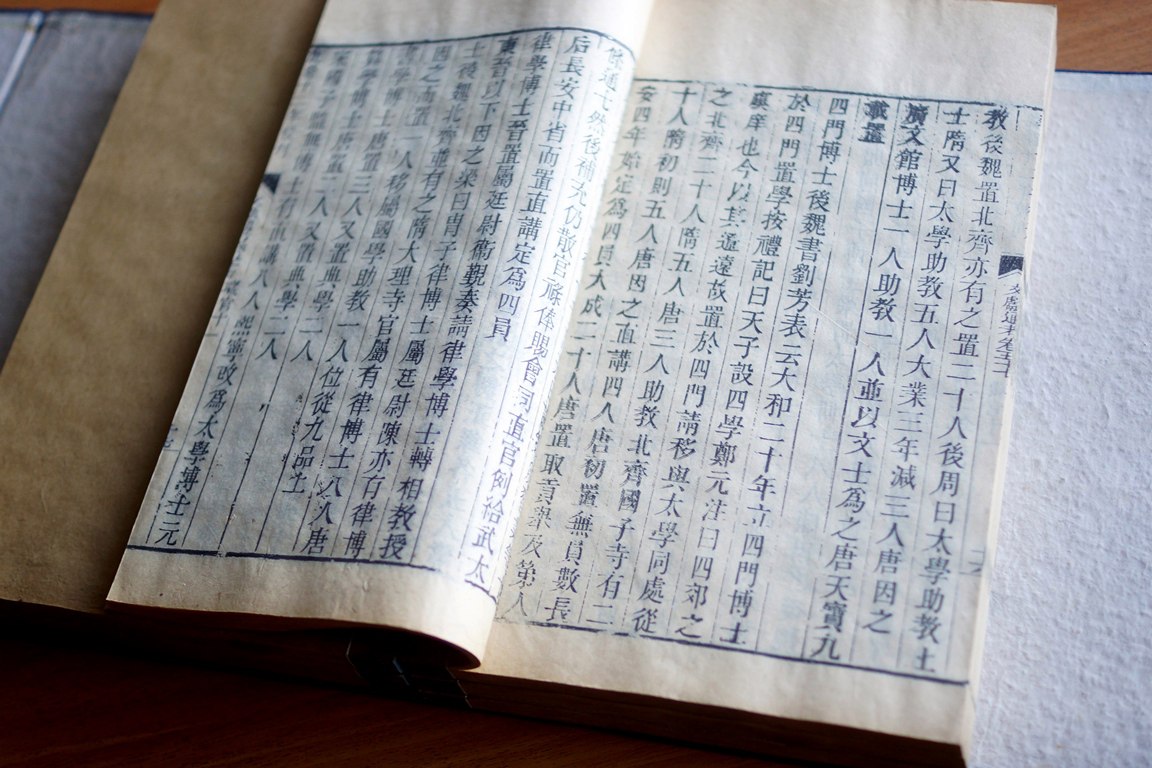 教後魏置北齊亦有之置二十人後周曰太學助教士
士隋又曰太學助教五人大業三年減三人唐因之
廣文館博士一人助教一人並以文士為之唐天寶九
載置
四門博士後魏書劉芳表云大和二十年立四門博士
於四門置學按禮記曰天子設四學鄭元注曰四郊之
虞庠也今以其遼遠故置於四門請移與太學同處從
之北齊二十人隋五人唐三人助教北齊國子寺有二
十人隋初則五人唐因之直講四人唐初置無員數長
安四年始定為四員大成二十人唐置取貢舉及第人
通 然後補充仍散官 賜會同直官例給武太
后長安中省而置直講定為四員
律學博士晉置屬廷尉衛覬奏請律學博士轉相教授
東晉以下因之梁曰冑子律博士屬廷尉陳亦有律博
士後魏北齊並有之隋大理寺官屬有律博士八人唐
因之 置一人移屬國學助教一人位從九品上
學博士唐置三人又置典學二人
學博士唐置二人又置典學二人
國子監 直講八人熙寧改為太學博士元